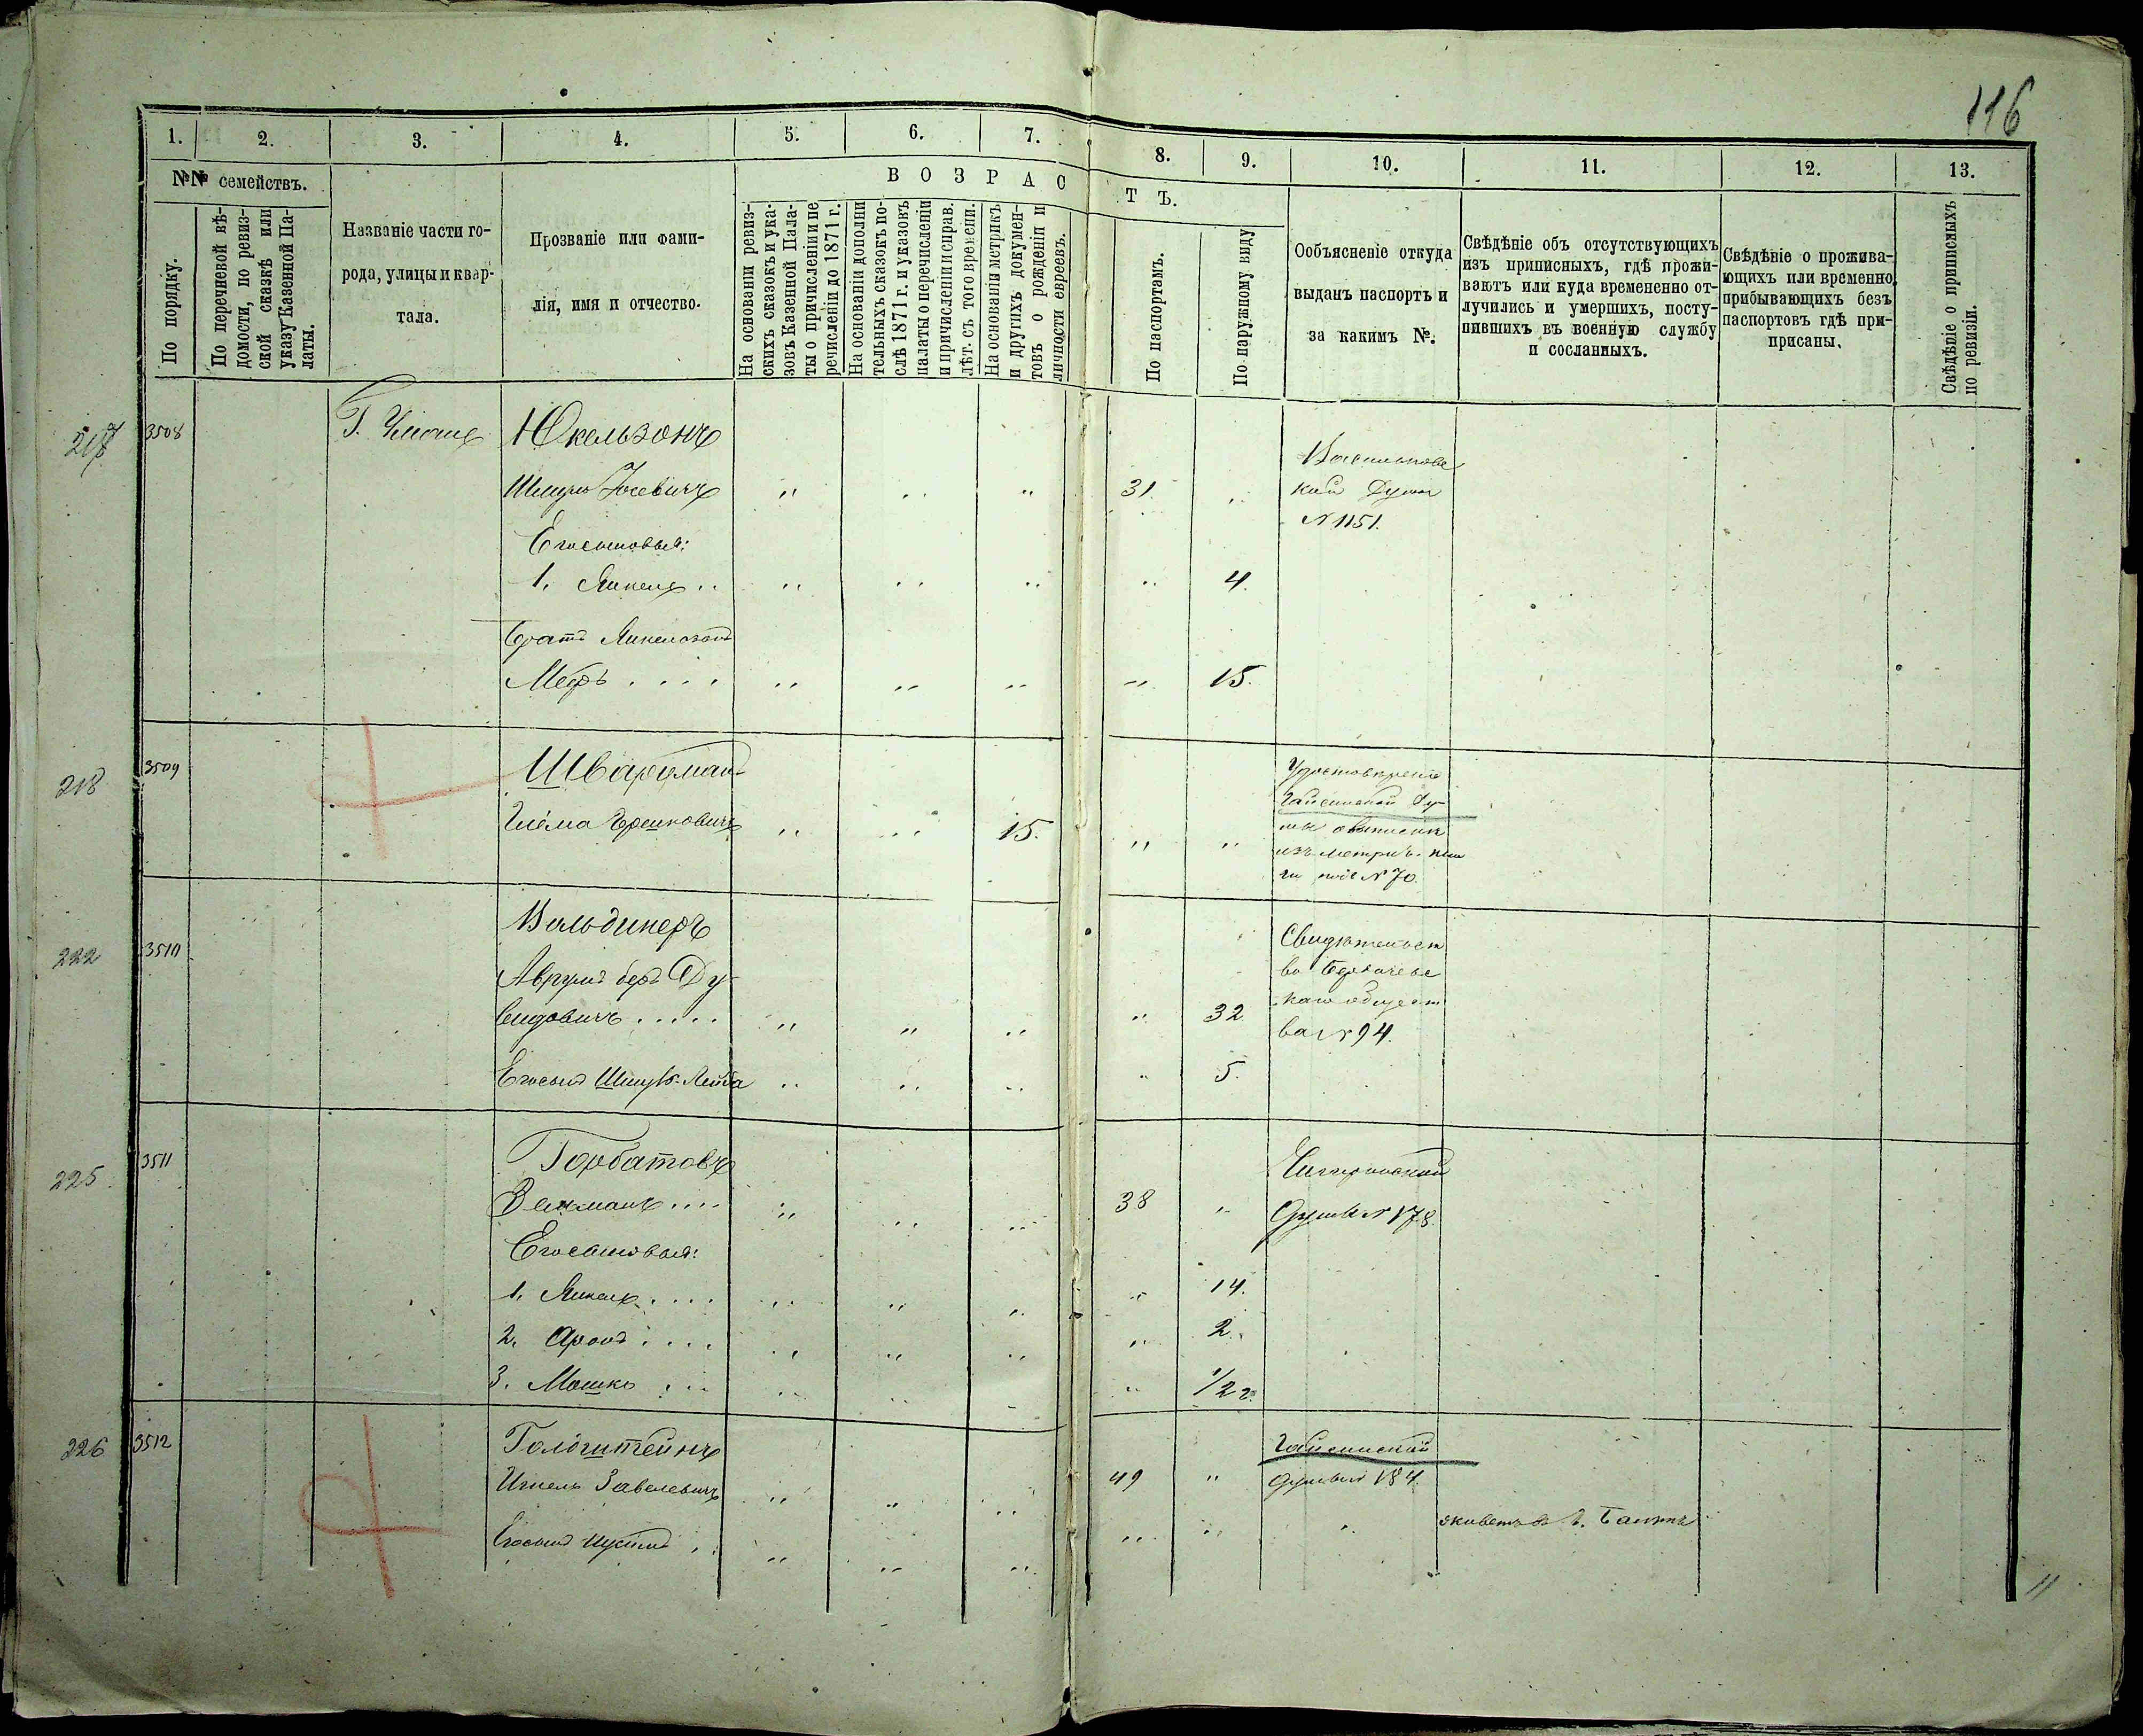 116
1. 2. 3. 4. 5. 6. 7. 8. 9. 10. 11. 12. 13.
№№ семействъ.
По порядку.
По перечневой вѣ-
домости, по ревиз-
ской сказкѣ или
указу Казенной Па-
латы.
Названіе части го-
рода, улицы и квар-
тала.
Прозваніе или фами-
лія, имя и отчество.
ВОЗРАСТЪ.
На основаніи ревиз-
скихъ сказокъ и ука-
зовъ Казенной Пала-
ты о причисленіи и пе
речисленіи до 1871 г.
На основаніи дополни
тельныхъ сказокъ по-
слѣ 1871 г. и указовъ
палаты о перечисленіи
и причисленіи и справ.
лѣт. съ того времени.
На основаніи метрикъ
и другихъ докумен-
товъ о рожденіи и
личности евреевъ.
По паспортамъ.
По наружному виду
Ообъясненіе откуда
выданъ паспортъ и
за какимъ №.
Свѣдѣніе объ отсутствующихъ
изъ приписныхъ, гдѣ прожи-
ваютъ или куда временно от-
лучились и умершихъ, посту-
пившихъ въ военную службу
и сосланныхъ.
Свѣдѣніе о прожива-
ющихъ или временно
прибывающихъ безъ
паспортовъ гдѣ при-
писаны.
Свѣдѣніе о приписныхъ
по ревизіи.
217 3508 Г. Умань Юкельзонъ
Васильковс
Шмуль Іосевичъ 31. кой Думы
N 1151.
Его сыновья:
1. Янкель 4.
Братъ
Меръ 15.
218 3509 Шварцманъ
Удостовѣреніе
Гайсинской Ду-
Гершковичъ 15.
изъ метрич. кни
ги подъ N 70.
222 3510 Вальдинеръ
Свидѣтельст
Аврумъ беръ Ду-
во Бердичевс
видовичъ 32
каго общест
ва N 94.
Его сынъ Шмуль-Лейба 5.
225 3511 Горбатовъ
Чигиринской
Зельманъ 38 Думы N 178.
Его сыновья:
1. Янкель 14.
2. Аронъ 2.
3. Мошко 1/2 г.
226 3512 Гольдштейнъ
Гайсинской
Завелевичъ 49 думы N 184.
Его сынъ
живетъ въ
11